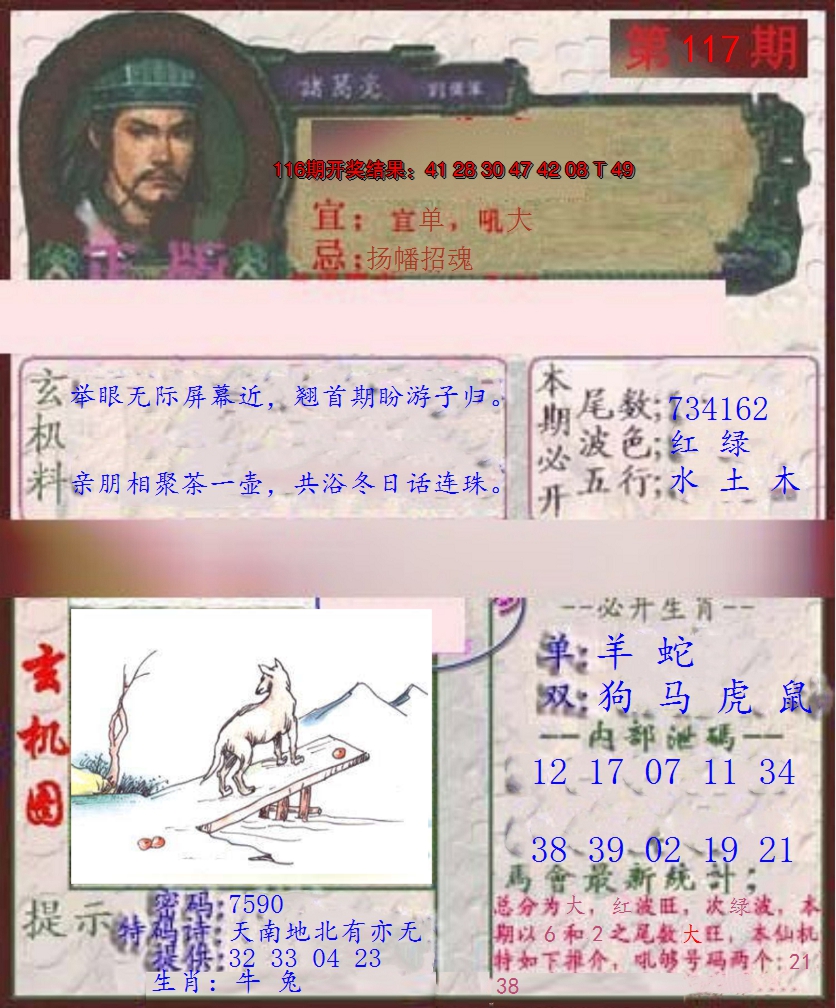 第117期
諸葛亮
116期开奖结果：41 28 30 47 42 08 T 49
宜：宜单，吼大
忌：扬幡招魂
正版
玄机料
举眼无际屏幕近，翘首期盼游子归。
亲朋相聚茶一壶，共浴冬日话连珠。
本期必开
尾数；734162
波色；红 绿
五行；水 土 木
玄机图
--必开生肖--
单：羊 蛇
双：狗 马 虎 鼠
—内部泄碼—
12 17 07 11 34
38 39 02 19 21
提示
密码：7590
特码诗：天南地北有亦无
提供：32 33 04 23
生肖：牛 兔
馬會最新統計；
总分为大，红波旺，次绿波，本
期以6和2之尾数大旺，本仙机
特如下推介，吼够号码两个：21
38